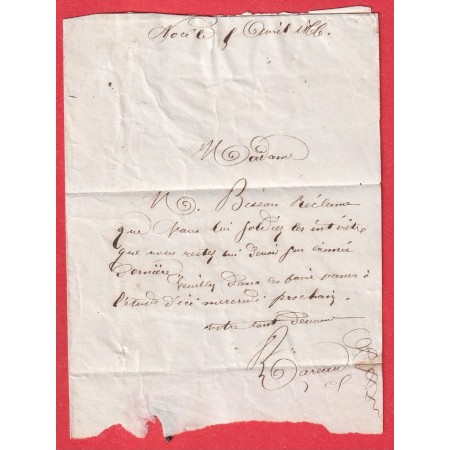 Nocé le 5 avril 1866.
Madame
M. Besson Réclame
que vous lui soldiez les intérêts
que vous restez lui devoir sur l'année
dernière veuillez donc les faire passer à
l'étude d'ici mercredi prochain.
votre tout dévoué